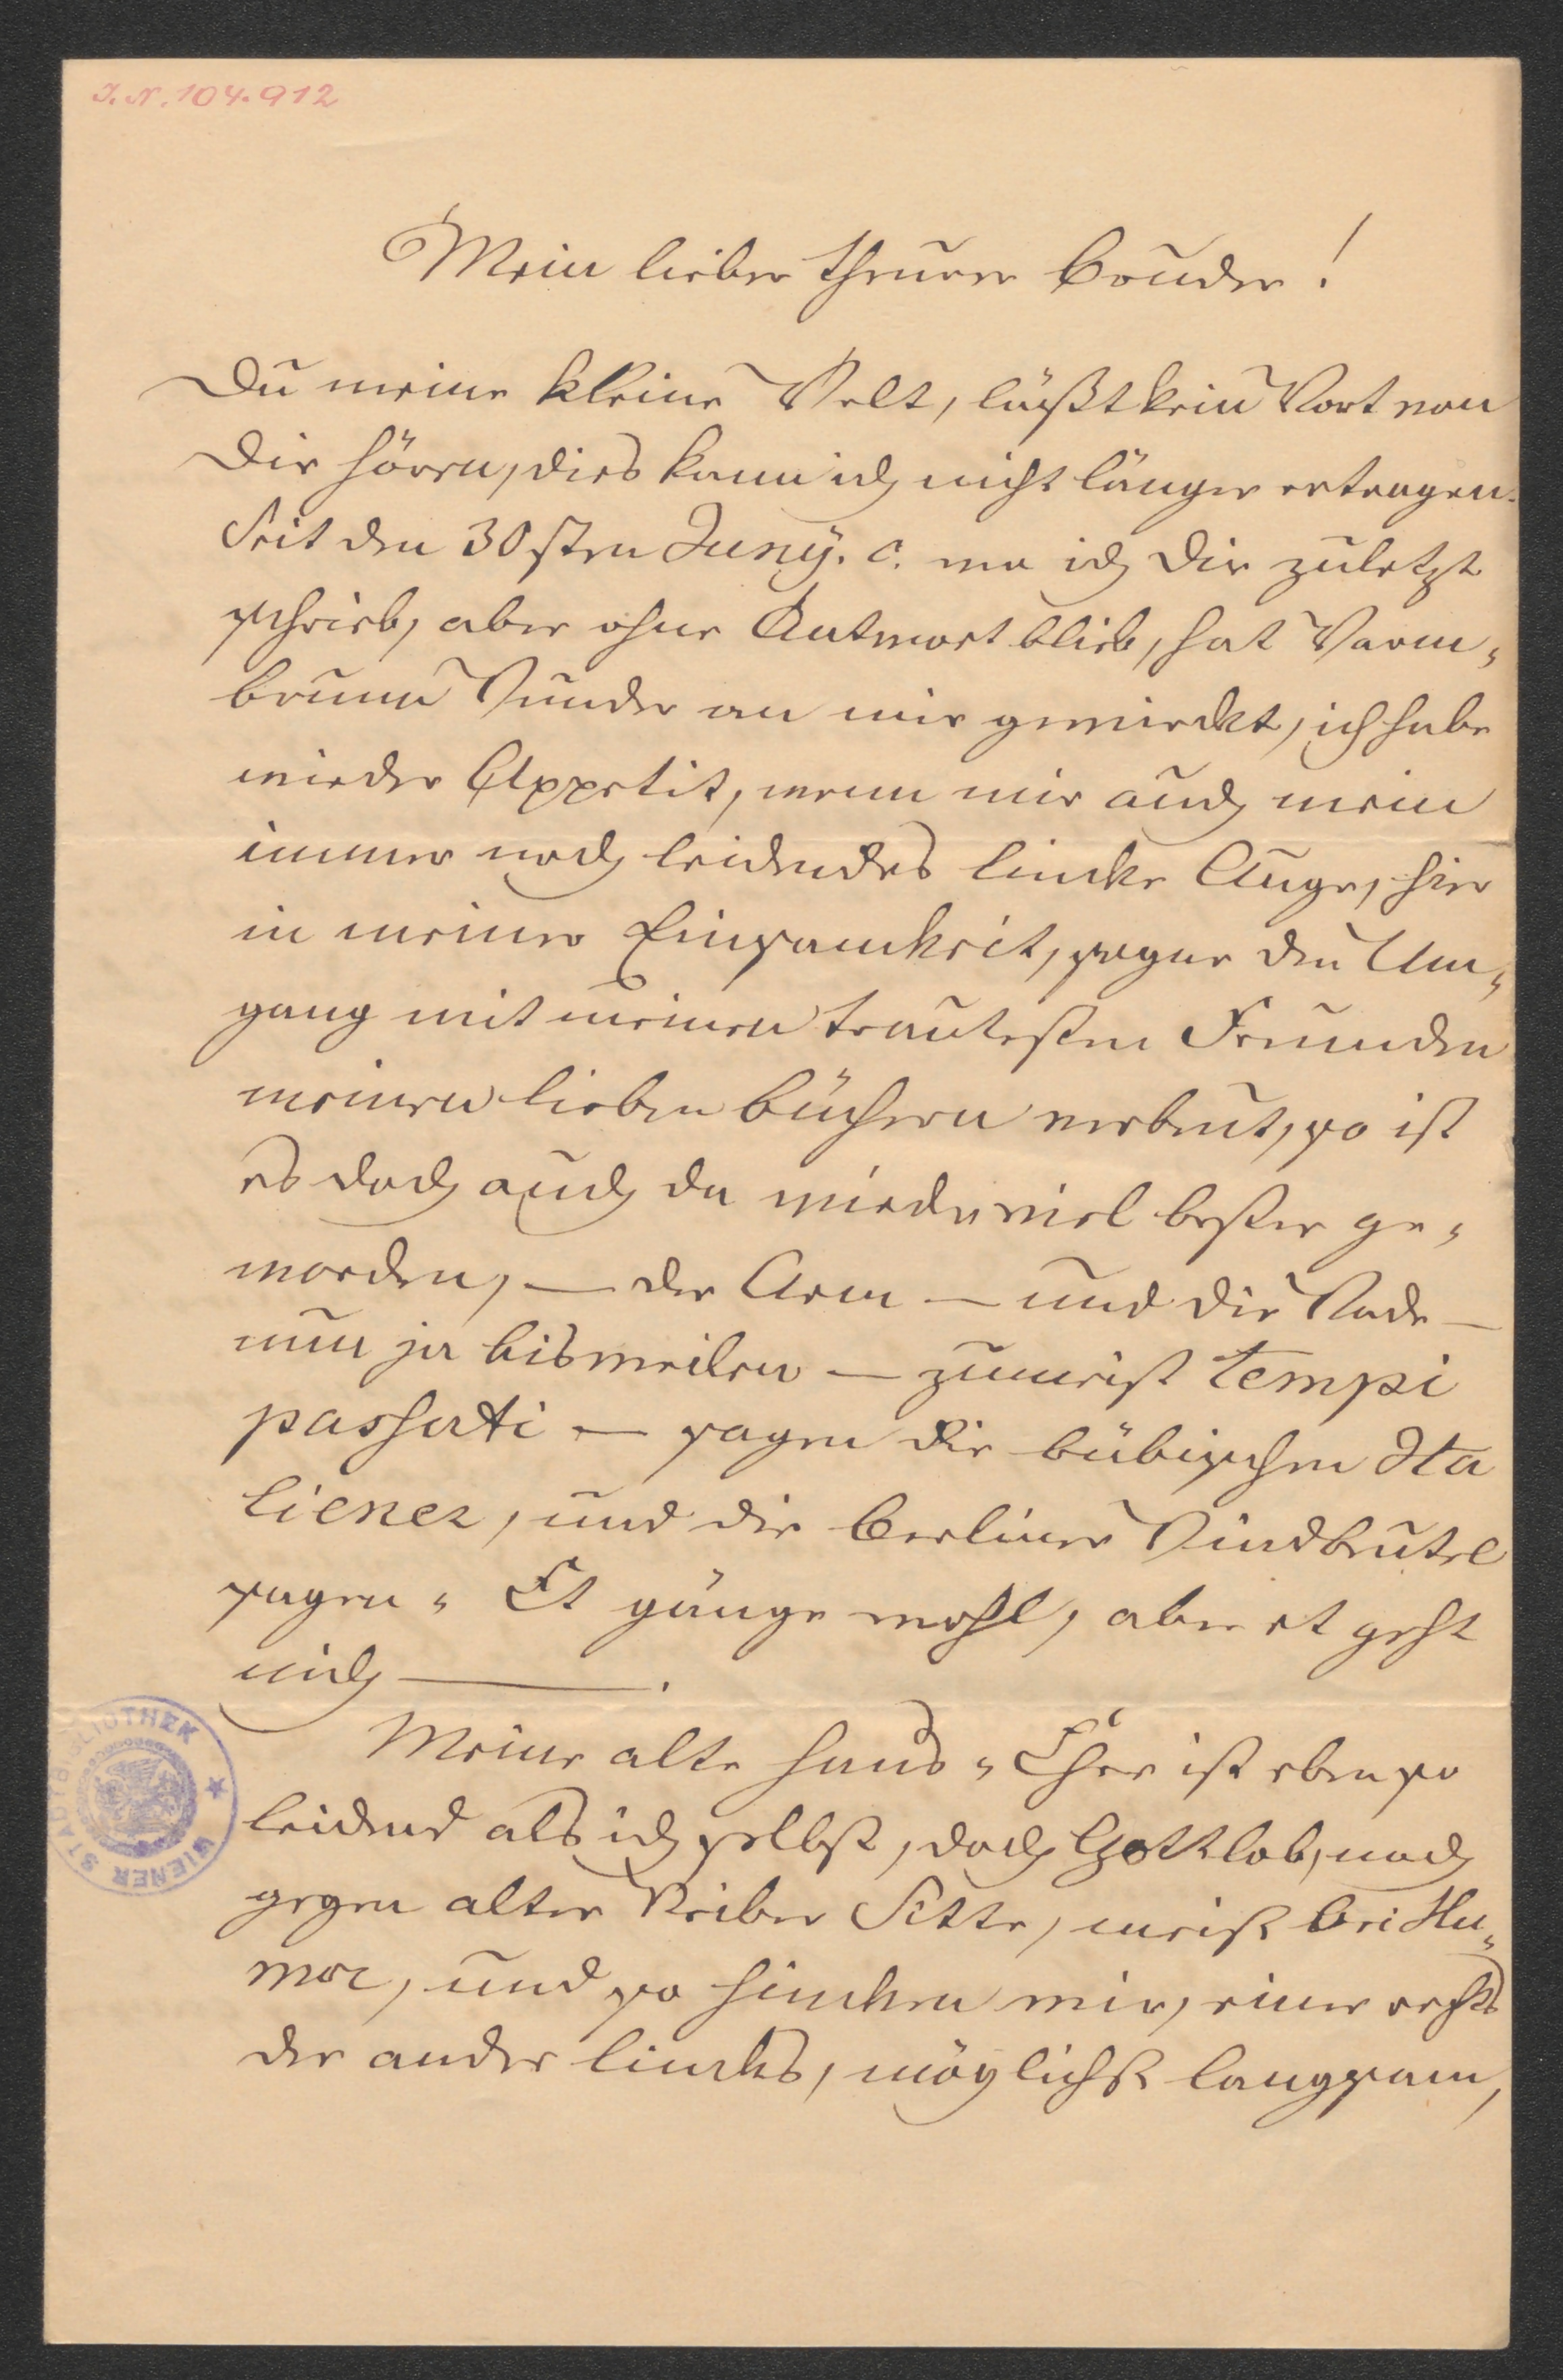 J. N. 104.912
Mein lieber theurer Bruder!
Du meine kleine Welt, läßt kein Wort von
Dir hören, dies kann ich nicht länger ertragen.
Seit den 30sten Junÿ. c. wo ich Dir zuletzt
schrieb, aber ohne Antwort blieb, hat Warm„
brunn Wunder an mir gewirckt, ich habe
wieder Appetit, wenn mir auch mein
immer noch leidendes lincke Auge, hier
in meiner Einsamkeit, sogar den Um„
gang mit meinen trautesten Freunden
meinen lieben Büchern verbeut, so ist
es doch auch da wieder viel besser ge„
worden, — der Arm — und die Wade —
nun ja bisweilen — zumeist tempi
passati — sagen die bübischen Ita
liener, und die Berliner Windbeutel
sagen „ Et gänge wohl, aber et geht
nich ———.
Meine alte Haus„Ehre ist eben so
leidend als ich selbst, doch Gottlob, noch
gegen alter Weiber Sitte, meist bei Hu„
mor, und so hincken wir, einer rechts
der ander lincks, möglichst langsam,
WIENER STADTBIBLIOTHEK